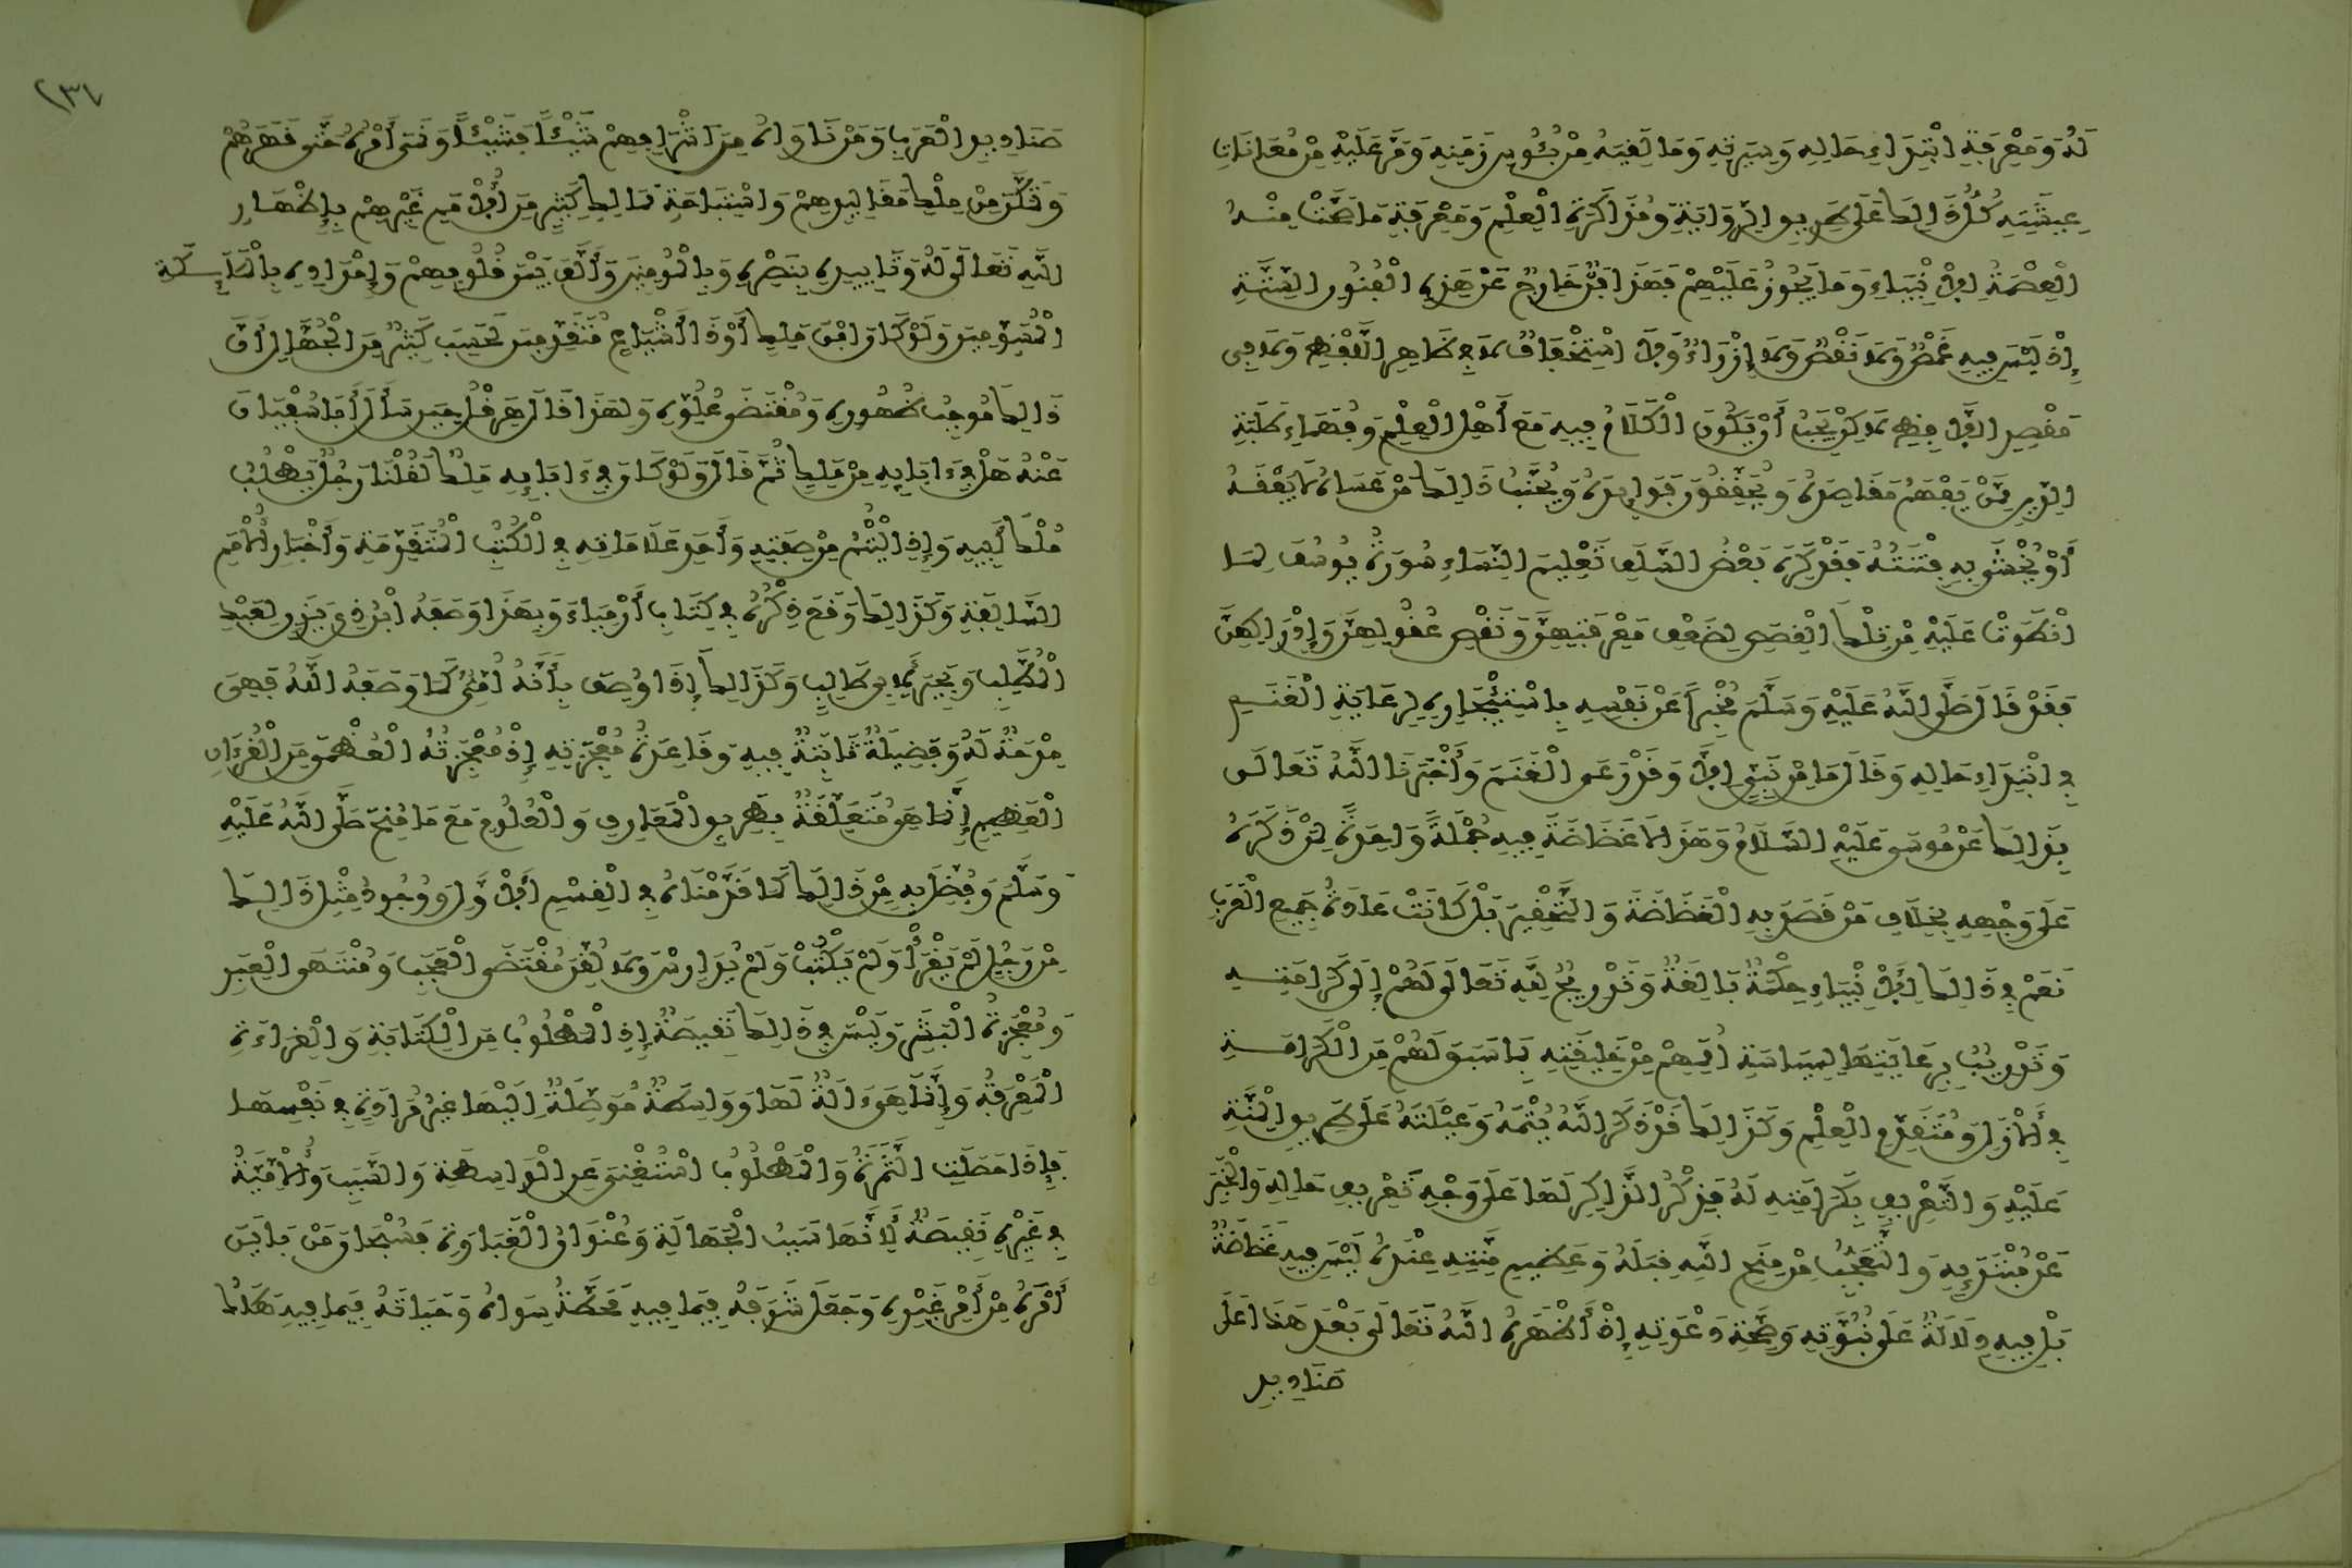 لَهُ وَمَعْرِفَةِ ابْتِدَاءِ حَالِهِ وَسِيرَتِهِ وَمَا لَقِيَهُ مِنْ بُؤْسِ زَمَنِهِ وَمَرَّ عَلَيْهِ مِنْ مُعَانَاتِ
عِيشَتِهِ كُلُّ ذَالِكَ عَلَى طَرِيقِ الرِّوَايَةِ وَمُذَاكَرَةِ الْعِلْمِ وَمَعْرِفَةِ مَا صَحَّتْ مِنْهُ
الْعِصْمَةُ لِلْأَنْبِيَاءِ وَمَا يَجُوزُ عَلَيْهِمْ فَهَذَا فَنٌّ خَارِجٌ عَنْ هَذِهِ الْفُنُونِ السِّتَّةِ
إِذْ لَيْسَ فِيهِ غَمْصٌ وَلَا نَقْصٌ وَلَا إِزْرَاءٌ وَلَا اسْتِخْفَافٌ لَا فِي ظَاهِرِ اللَّفْظِ وَلَا فِي
مَقْصِدِ اللَّافِظِ لَاكِنْ يَجِبُ أَنْ يَكُونَ الْكَلَامُ فِيهِ مَعَ أَهْلِ الْعِلْمِ وَفُهَمَاءِ طَلَبَةِ
الدِّينِ مِمَّنْ يَفْهَمُ مَقَاصِدَهُ وَيُحَقِّقُونَ فَوَائِدَهُ وَيُجَنَّبُ ذَالِكَ مَنْ عَسَاهُ لَا يَفْقَهُ
أَوْ يُخْشَى بِهِ فِتْنَتُهُ فَقَدْ كَرِهَ بَعْضُ السَّلَفِ تَعْلِيمَ النِّسَاءِ سُورَةَ يُوسُفَ لِمَا
انْطَوَتْ عَلَيْهِ مِنْ تِلْكَ الْقِصَصِ لِضَعْفِ مَعْرِفَتِهِنَّ وَنَقْصِ عُقُولِهِنَّ وَإِدْرَاكِهِنَّ
فَقَدْ قَالَ صَلَّى اللَّهُ عَلَيْهِ وَسَلَّمَ مُخْبِراً عَنْ نَفْسِهِ بِاسْتِئْجَارِهِ لِرِعَايَةِ الْغَنَمِ
فِي ابْتِدَاءِ حَالِهِ وَقَالَ مَا مِنْ نَبِيٍّ إِلَّا وَقَدْ رَعَى الْغَنَمَ وَأَخْبَرَنَا اللَّهُ تَعَالَى
بِذَالِكَ عَنْ مُوسَى عَلَيْهِ السَّلَامُ وَهَذَا لَا غَضَاضَةَ فِيهِ جُمْلَةً وَاحِدَةً لِمَنْ ذَكَرَهُ
عَلَى وَجْهِهِ بِخِلَافِ مَنْ قَصَدَ بِهِ الْغَضَاضَةَ وَالتَّحْقِيرَ بَلْ كَانَتْ عَادَةُ جَمِيعِ الْعَرَبِ
نَعَمْ فِي ذَالِكَ لِلْأَنْبِيَاءِ حِكْمَةٌ بَالِغَةٌ وَتَدْرِيجٌ لِلَّهِ تَعَالَى لَهُمْ إِلَى كَرَامَتِهِ
وَتَدْرِيبٌ بِرِعَايَتِهَا لِسِيَاسَةِ أُمَمِهِمْ مِنْ خَلِيقَتِهِ بِمَا سَبَقَ لَهُمْ مِنَ الْكَرَامَةِ
فِي الْأَزَلِ وَمُتَقَدِّمِ الْعِلْمِ وَكَذَالِكَ قَدْ ذَكَرَ اللَّهُ يُتْمَهُ وَعَيْلَتَهُ عَلَى طَرِيقِ الْمِنَّةِ
عَلَيْهِ وَالتَّعْرِيفِ بِكَرَامَتِهِ لَهُ فَذِكْرُ الذَّاكِرِ لَهَا عَلَى وَجْهِ تَعْرِيفِ حَالِهِ وَالْخَبَرِ
عَنْ مُبْتَدَئِهِ وَالتَّعَجُّبُ مِنْ مِنَحِ اللَّهِ قِبَلَهُ وَعَظِيمِ مِنَّتِهِ عِنْدَهُ لَيْسَ فِيهِ غَضَاضَةٌ
بَلْ فِيهِ دَلَالَةٌ عَلَى نُبُوَّتِهِ وَصِحَّةِ دَعْوَتِهِ إِذْ أَظْهَرَهُ اللَّهُ تَعَالَى بَعْدَ هَذَا عَلَى
صَنَادِيدِ
٢٣٧
صَنَادِيدِ الْعَرَبِ وَمَنْ نَاوَاهُ مِنْ أَشْرَافِهِمْ شَيْئاً فَشَيْئاً وَنَمَى أَمْرُهُ حَتَّى قَهَرَهُمْ
وَتَمَكَّنَ مِنْ مِلْكِ مَقَالِيدِهِمْ وَاسْتِبَاحَةِ مَمَالِكِ كَثِيرٍ مِنَ الْأُمَمِ غَيْرِهِمْ بِإِظْهَارِ
اللَّهِ تَعَالَى لَهُ وَتَأْيِيدِهِ بِنَصْرِهِ وَبِالْمُومِنِينَ وَأَلَّفَ بَيْنَ قُلُوبِهِمْ وَإِمْدَادِهِ بِالْمَلَائِكَةِ
الْمُسَوِّمِينَ وَلَوْ كَانَ ابْنَ مَلِكٍ أَوْ ذَا أَشْيَاعٍ مُتَقَدِّمِينَ لَحَسِبَ كَثِيرٌ مِنَ الْجُهَّالِ أَنَّ
ذَالِكَ مُوجِبُ ظُهُورِهِ وَمُقْتَضَى عُلُوِّهِ وَلِهَذَا قَالَ هِرَقْلُ حِينَ سَأَلَ أَبَا سُفْيَانَ
عَنْهُ هَلْ فِي ءَابَائِهِ مِنْ مَلِكٍ ثُمَّ قَالَ وَلَوْ كَانَ فِي ءَابَائِهِ مَلِكٌ لَقُلْنَا رَجُلٌ يَطْلُبُ
مُلْكَ أَبِيهِ وَإِذِ الْيُتْمُ مِنْ صِفَتِهِ وَأَحَدِ عَلَامَاتِهِ فِي الْكُتُبِ الْمُتَقَدِّمَةِ وَأَخْبَارِ الْأُمَمِ
السَّالِفَةِ وَكَذَالِكَ وَقَعَ ذِكْرُهُ فِي كِتَابِ أَرْمِيَاءَ وَبِهَذَا وَصَفَهُ ابْنُ ذِي يَزَنٍ لِعَبْدِ
الْمُطَّلِبِ وَبَحِيرَا لِأَبِي طَالِبٍ وَكَذَالِكَ إِذَا وُصِفَ بِأَنَّهُ أُمِّيٌّ كَمَا وَصَفَهُ اللَّهُ فَهِيَ
مِدْحَةٌ لَهُ وَفَضِيلَةٌ ثَابِتَةٌ فِيهِ وَقَاعِدَةُ مُعْجِزَتِهِ إِذْ مُعْجِزَتُهُ الْعُظْمَى مِنَ الْقُرْءَانِ
الْعَظِيمِ إِنَّمَا هِيَ مُتَعَلِّقَةٌ بِطَرِيقِ الْمَعَارِفِ وَالْعُلُومِ مَعَ مَا مُنِحَ صَلَّى اللَّهُ عَلَيْهِ
وَسَلَّمَ وَفُضِّلَ بِهِ مِنْ ذَالِكَ كَمَا قَدَّمْنَاهُ فِي الْقِسْمِ الْأَوَّلِ وَوُجُودُ مِثْلِ ذَالِكَ
مِنْ رَجُلٍ لَمْ يَقْرَأْ وَلَمْ يَكْتُبْ وَلَمْ يُدَارِسْ وَلَا لُقِّنَ مُقْتَضَى الْعَجَبِ وَمُنْتَهَى الْعِبَرِ
وَمُعْجِزَةُ الْبَشَرِ وَلَيْسَ فِي ذَالِكَ نَقِيصَةٌ إِذِ الْمَطْلُوبُ مِنَ الْكِتَابَةِ وَالْقِرَاءَةِ
الْمَعْرِفَةُ وَإِنَّمَا هِيَ ءَالَةٌ لَهَا وَوَاسِطَةٌ مُوَصِّلَةٌ إِلَيْهَا غَيْرُ مُرَادَةٍ فِي نَفْسِهَا
فَإِذَا حَصَلَتِ الثَّمَرَةُ وَالْمَطْلُوبُ اسْتُغْنِيَ عَنِ الْوَاسِطَةِ وَالسَّبَبِ وَالْأُمِّيَّةُ
فِي غَيْرِهِ نَقِيصَةٌ لِأَنَّهَا سَبَبُ الْجَهَالَةِ وَعُنْوَانُ الْغَبَاوَةِ فَسُبْحَانَ مَنْ بَايَنَ
أَمْرَهُ مِنْ أَمْرِ غَيْرِهِ وَجَعَلَ شَرَفَهُ فِيمَا فِيهِ مَحَطَّةُ سِوَاهُ وَحَيَاتَهُ فِيمَا فِيهِ هَلَاكُ